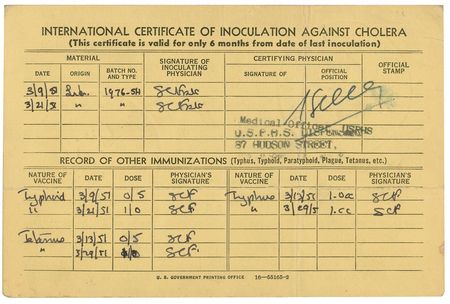 INTERNATIONAL CERTIFICATE OF INOCULATION AGAINST CHOLERA
(This certificate is valid for only 6 months from date of last inoculation)
MATERIAL SIGNATURE OF INOCULATING PHYSICIAN CERTIFYING PHYSICIAN OFFICIAL STAMP
DATE ORIGIN BATCH NO. AND TYPE SIGNATURE OF OFFICIAL POSITION
3/9/51 1976-5H
3/21/51 " "
Medical Officer USPHS
U.S.P.H.S.
67 HUDSON STREET,
RECORD OF OTHER IMMUNIZATIONS (Typhus, Typhoid, Paratyphoid, Plague, Tetanus, etc.)
NATURE OF VACCINE DATE DOSE PHYSICIAN'S SIGNATURE NATURE OF VACCINE DATE DOSE PHYSICIAN'S SIGNATURE
Typhoid 3/9/51 0/5 SCF Typhus 3/13/51 1.0cc SCF
" 3/21/51 1/0 SCF " 1.cc SCF
Tetanus 3/13/51 0/5 SCF
" 3/29/51 SCF
U. S. GOVERNMENT PRINTING OFFICE 16—55165-2